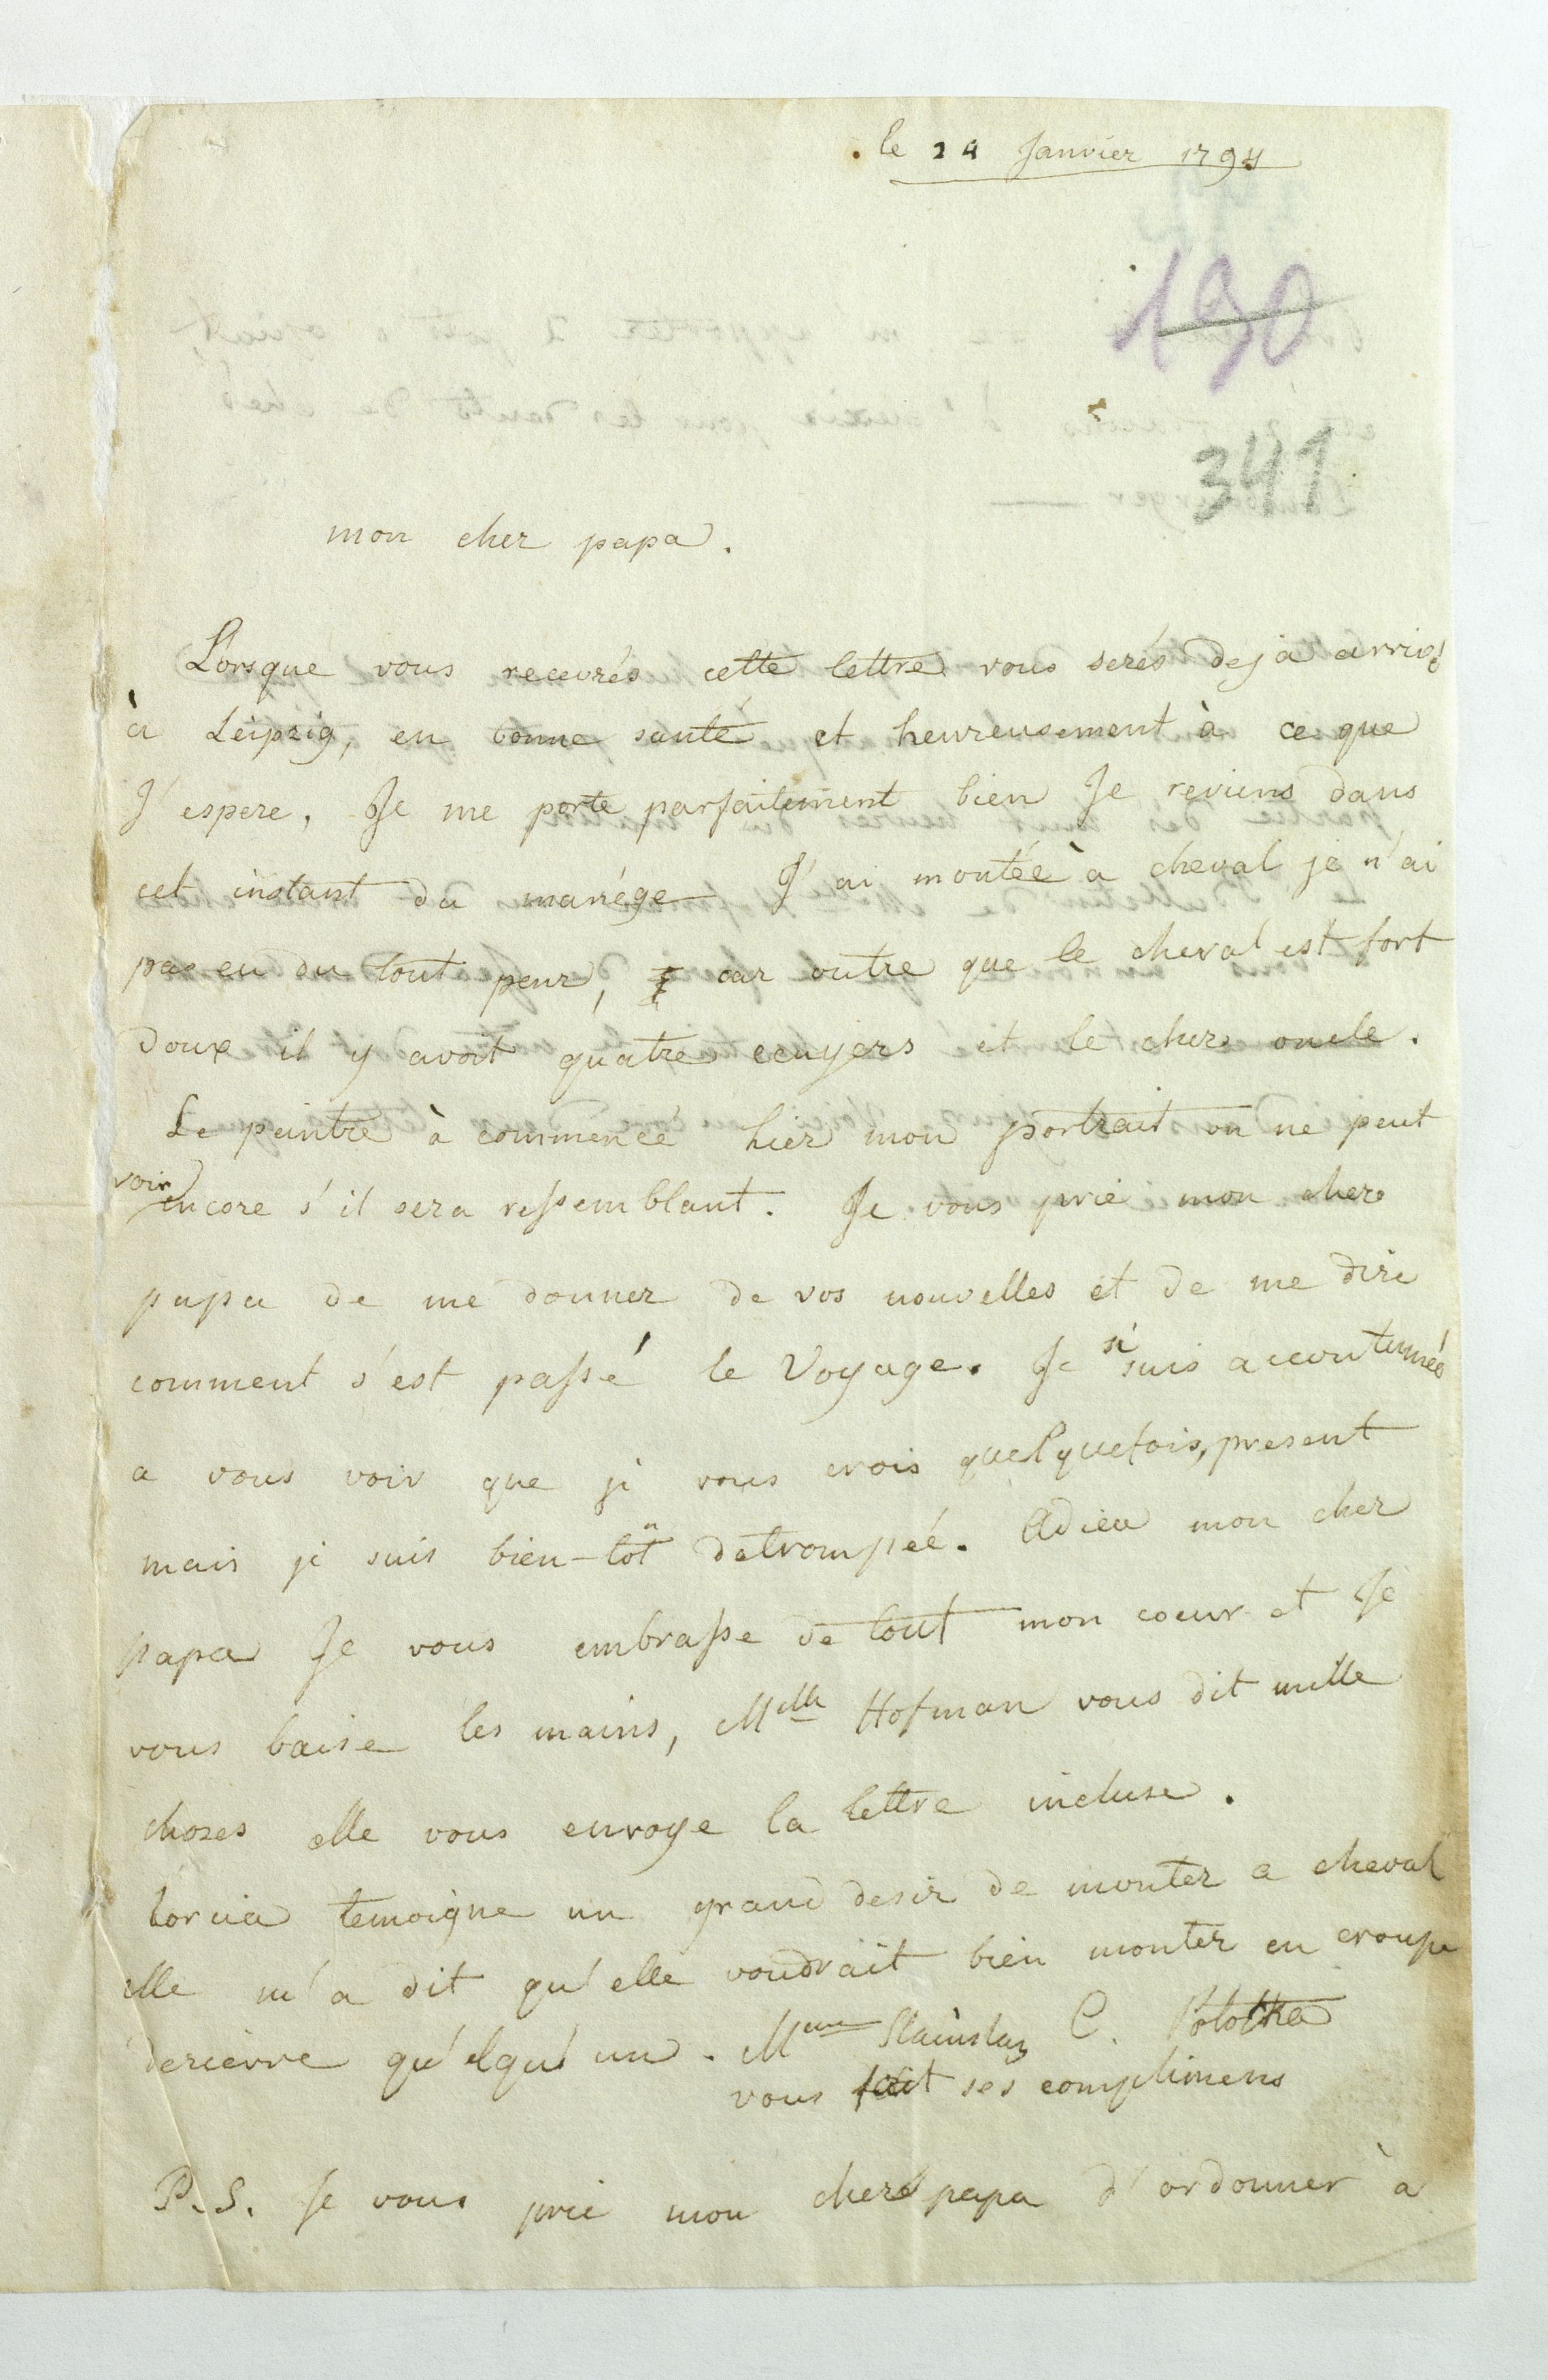 le 24 Janvier 1794
190
341
mon cher papa.
Lorsque vous recevrés cette lettre vous serés deja arrivé
à Leipzig, en bonne santé et heureusement à ce que
J'espere, Je me porte parfaitement bien Je reviens dans
cet instant du manége J'ai montée à cheval je n'ai
pas eu du tout peur, car outre que le cheval est fort
doux il y avoit quatre ecuyers et le cher oncle.
Le peintre à commencé hier mon portrait on ne peut
voir encore s'il sera ressemblant. Je vous prie mon cher
papa de me donner de vos nouvelles et de me dire
comment s'est passé le Voyage. Je si suis accoutumée
a vous voir que je vous crois quelquefois, present
mais je suis bien-tôt detrompée. Adieu mon cher
papa Je vous embrasse de tout mon coeur et Je
vous baise les mains, Mlle Hofman vous dit mille
choses elle vous envoye la lettre incluse.
temoigne un grand desir de monter a cheval
elle m'a dit qu'elle voudrait bien monter en croupe
derierre quelqu'un. Mme Stanislas C. Pototka
vous fait ses complimens
P.S. Je vous prie mon cher papa d'ordonner à